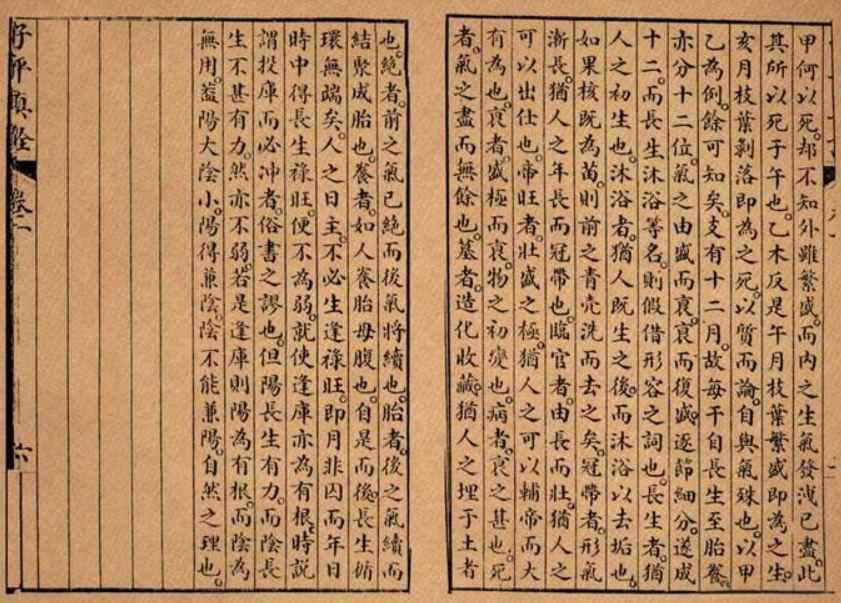 甲何以死。却不知外雖繁盛。而内之生氣發洩已盡。此
其所以死于午也。乙木反是午月枝葉繁盛即為之生。
亥月枝葉剝落即為之死。以質而論。自與氣殊也。以甲
乙為例。餘可知矣。支有十二月。故每干自長生至胎養。
亦分十二位。氣之由盛而衰。衰而復盛。逐節細分。遂成
十二。而長生沐浴等名。則假借形容之詞也。長生者。猶
人之初生也。沐浴者。猶人既生之後。而沐浴以去垢也。
如果核既為苗。則前之青壳洗而去之矣。冠帶者。形氣
漸長。猶人之年長而冠帶也。臨官者。由長而壯。猶人之
可以出仕也。帝旺者。壯盛之極。猶人之可以輔帝而大
有為也。衰者。盛極而衰。物之初變也。病者。衰之甚也。死
者。氣之盡而無餘也。墓者。造化收藏。猶人之埋于土者
也。絶者。前之氣已絶而後氣將續也。胎者。後之氣續而
結聚成胎也。養者。如人養胎母腹也。自是而後。長生循
環無端矣。人之日主。不必生逢祿旺。即月非囚而年日
時中得長生祿旺。便不為弱。就使逢庫亦為有根。時説
謂投庫而必冲者。俗書之謬也。但陽長生有力。而陰長
生不甚有力。然亦不弱。若是逢庫則陽為有根。而陰為
無用。葢陽大陰小。陽得兼陰。陰不能兼陽。自然之理也。
子平真詮 卷二 六